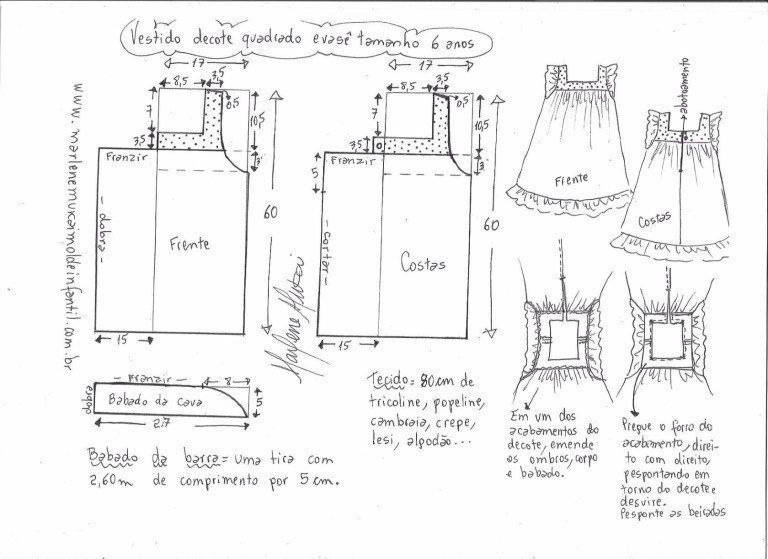 Vestido decote quadrado evasê tamanho 6 anos
www.marlenemukaimoldeinfantil.com.br
17
8,5
3,5
0,5
7
10,5
3,5
3
Franzir
- dobra -
Frente
60
15
17
8,5
3,5
0,5
7
10,5
3,5
3
Franzir
5
- cortar -
Costas
60
15
Marlene Mukai
Frente
Costas
abotoamento
- Franzir -
8
dobra
Babado da cava
5
27
Babado da barra = uma tira com
2,60m de comprimento por 5 cm.
Tecido = 80 cm de
tricoline, popeline,
cambraia, crepe,
lesi, algodão...
Em um dos
acabamentos do
decote, emende
os ombros, corpo
e babado.
Pregue o forro do
acabamento, direi-
to com direito,
pespontando em
torno do decote e
desvire.
Pesponte as beiradas